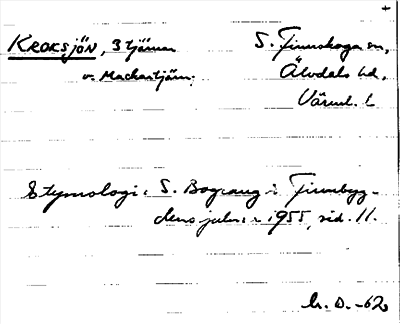 KROKSJÖN, 3 tjärnar
v. Mackartjärn.
S. Finnskoga sn,
Älvdals hd,
Värml. l.
Etymologi: S. Bograng i Finnbyg-
dens julnr 1955, sid. 11.
-62